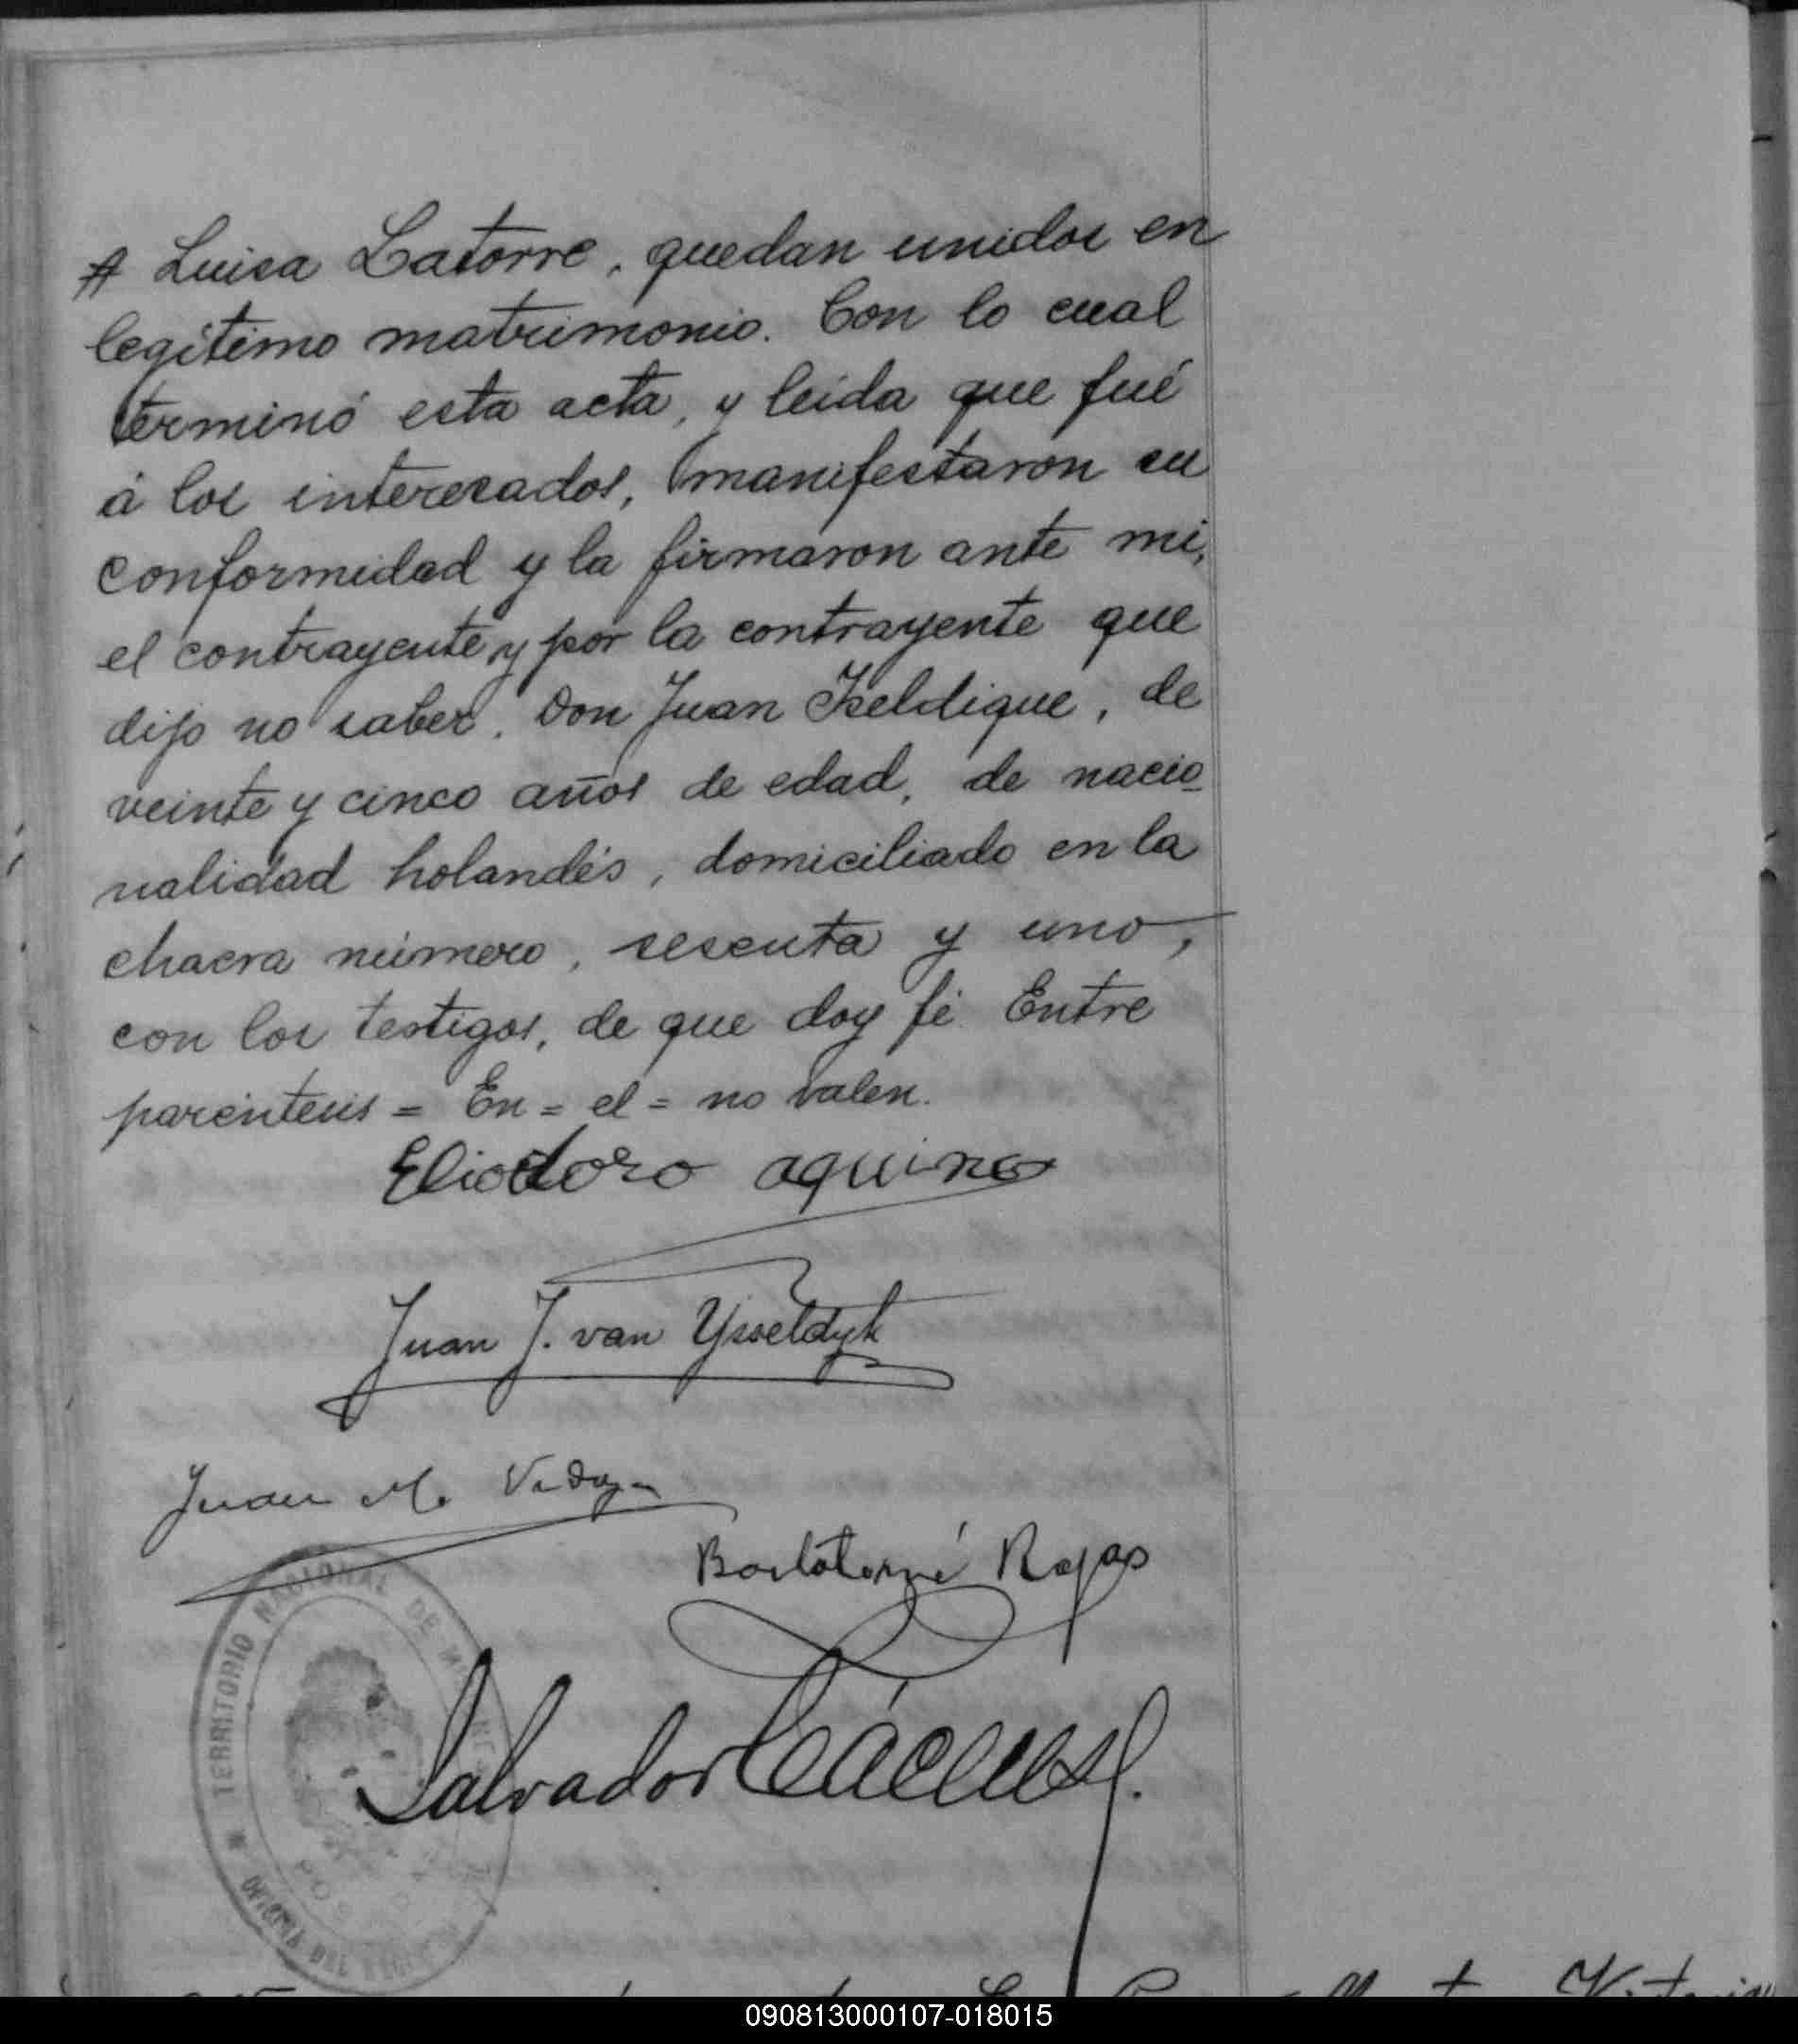 A Luisa Latorre, quedan unidos en
legítimo matrimonio. Con lo cual
terminó esta acta, y leida que fué
á los interesados, manifestaron su
conformidad y la firmaron ante mi,
el contrayente y por la contrayente que
dijo no saber. Don Juan Iseldique, de
veinte y cinco años de edad, de nacio
nalidad holandés, domiciliado en la
chacra número, sesenta y uno,
con los testigos, de que doy fé. Entre
paréntesis = En = el = no valen.
Eliodoro aquino
Juan J. van Ysseldyk
Juan M.
Bartolomé Rojas
TERRITORIO NACIONAL DE
Salvador
OFICINA DEL
090813000107-018015